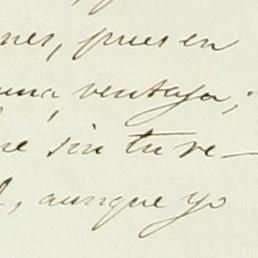 nes, pues en
una ventaja;
ne sin tu re-
, aunque yo